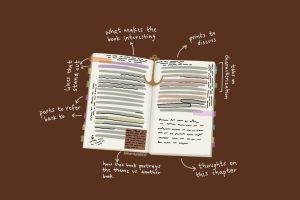 what makes the
book interesting
points to
discuss
lines that
stand out
take on
characterisation
parts to refer
back to
how this book portrays
the theme vs another
book.
thoughts on
this chapter